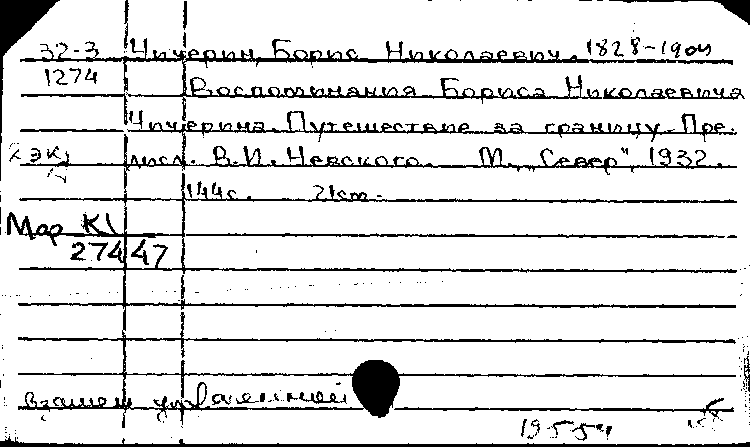 32-3 Чичерин, Борис Николаевич. 1828-1904
1274 Воспоминания Бориса Николаевича
Чичерина. Путешествие за границу. Пре.
2 экз дисл. В.И. Невского. М., „Север", 1932.
144с. 21см.
Мар К1
274 47
взамен управленной
1955г